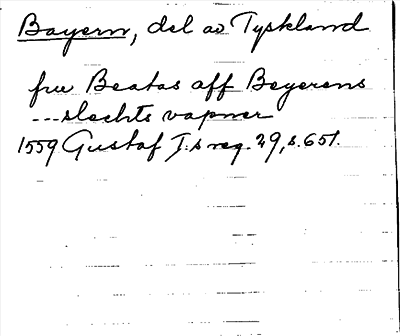 Bayern, del av Tyskland
fru Beatas aff Beyerens
---slechts vapner
1559 Gustaf I:s reg. 29, s. 651.